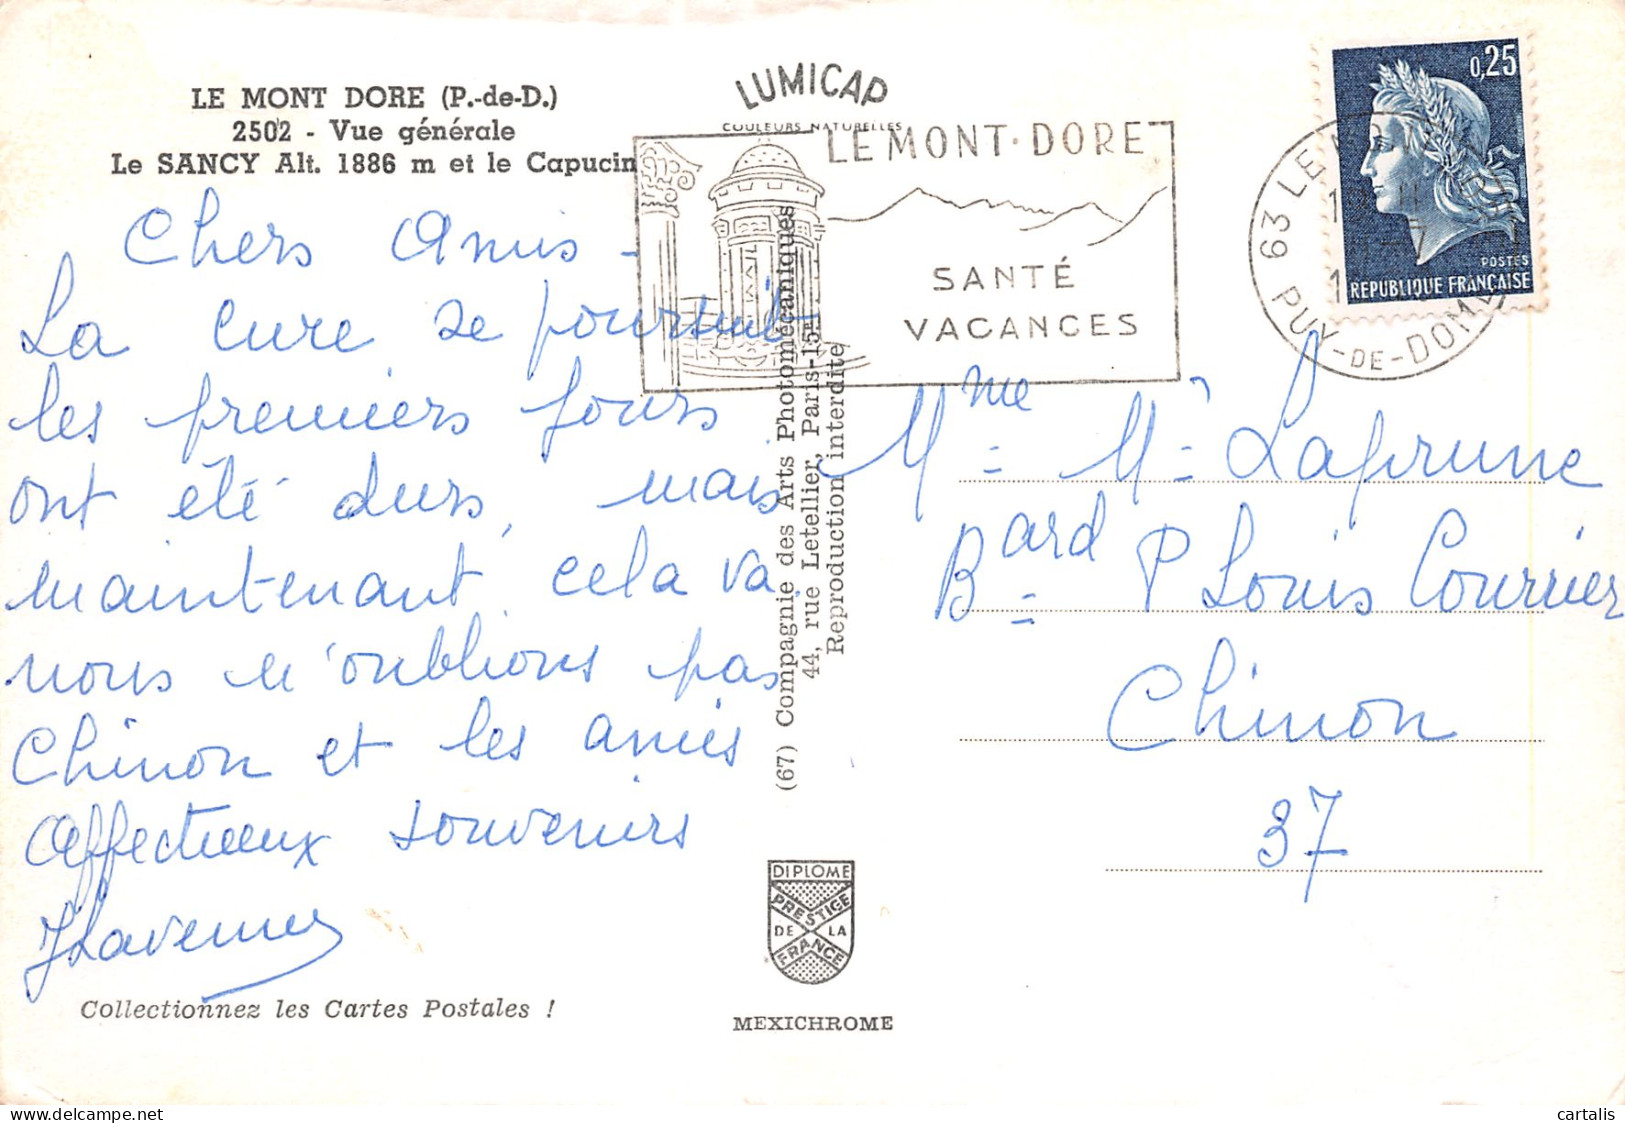 LE MONT DORE (P.-de-D.)
2502 - Vue générale
Le SANCY Alt. 1886 m et le Capucin
Chers Amis -
La cure se poursuit
les premiers jours
ont été durs, mais
maintenant cela va
nous n'oublions pas
Chinon et les amies
Affectueux souvenirs
Collectionnez les Cartes Postales !
LUMICAP
COULEURS NATURELLES
LE MONT-DORE
SANTÉ
VACANCES
(67) Compagnie des Arts Photomécaniques
44, rue Letellier, Paris-15e
Reproduction interdite
DIPLOME
PRESTIGE
DE LA
FRANCE
MEXICHROME
0,25
POSTES
REPUBLIQUE FRANÇAISE
63 LE
PUY-DE-DOME
Mme Mr Laprune
Bard P Louis Courrier
Chinon
37
cartalis